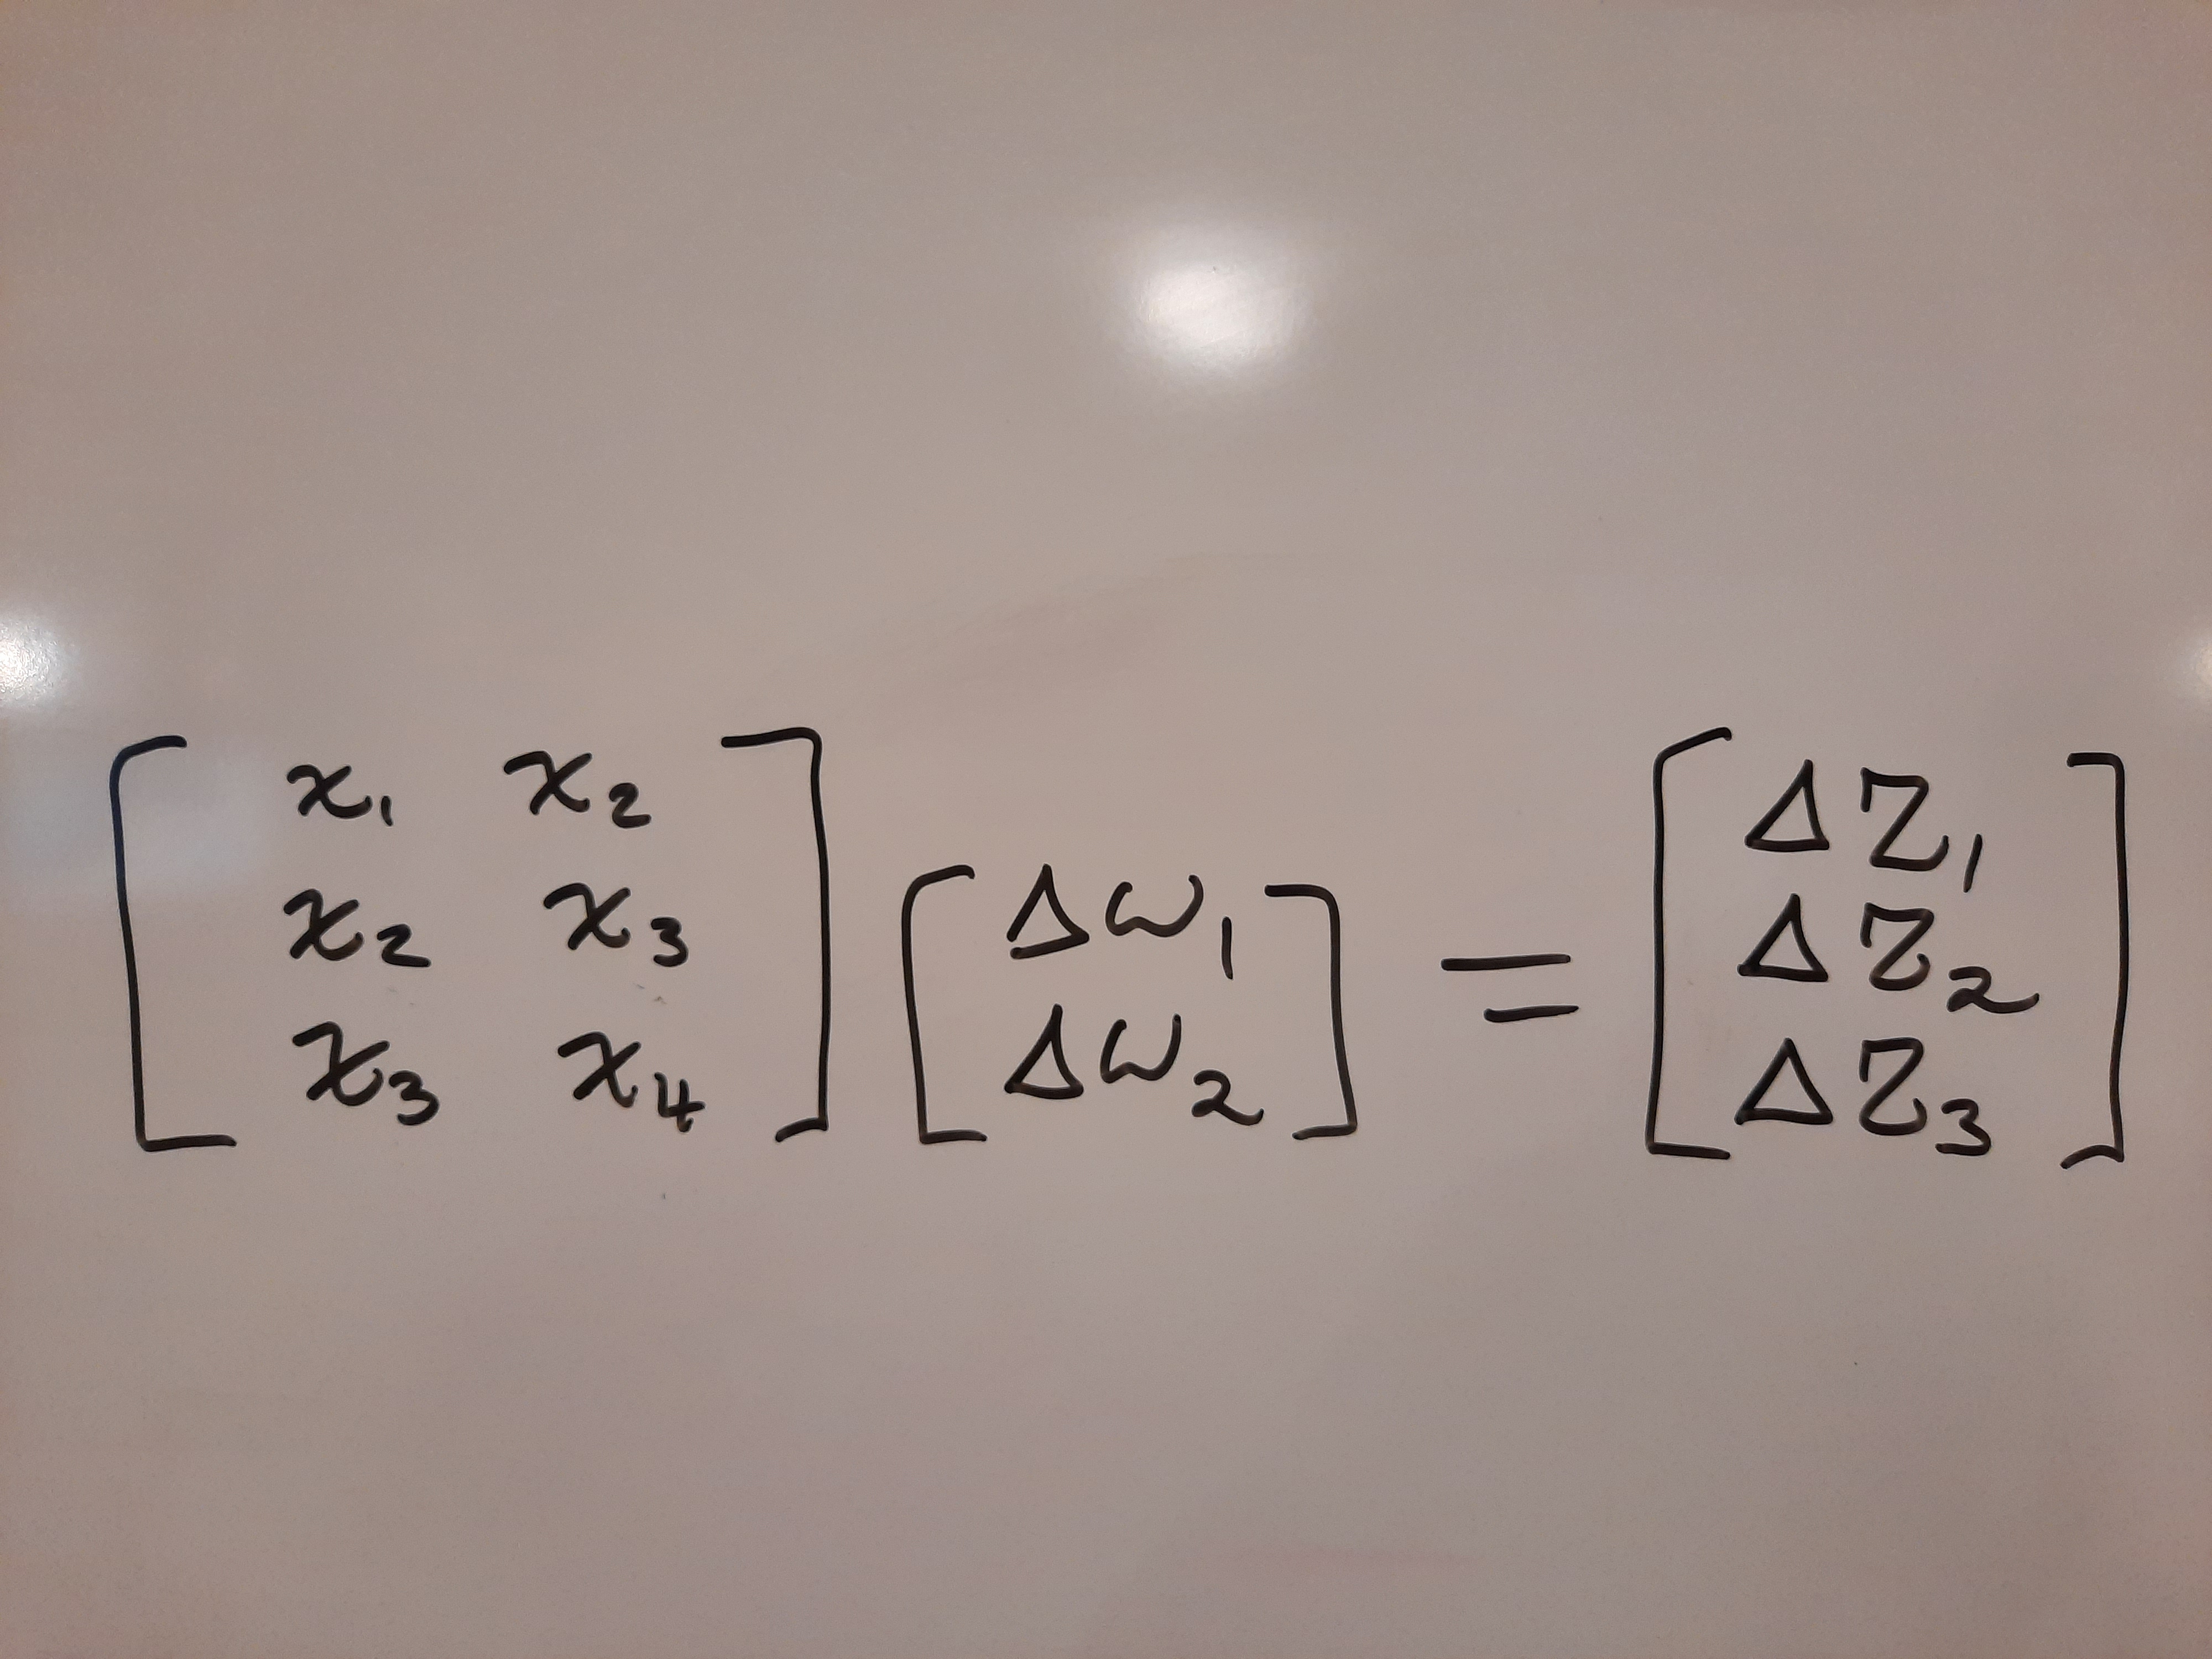 [ x₁ x₂ ; x₂ x₃ ; x₃ x₄ ] [ Δω₁ ; Δω₂ ] = [ ΔZ₁ ; ΔZ₂ ; ΔZ₃ ]